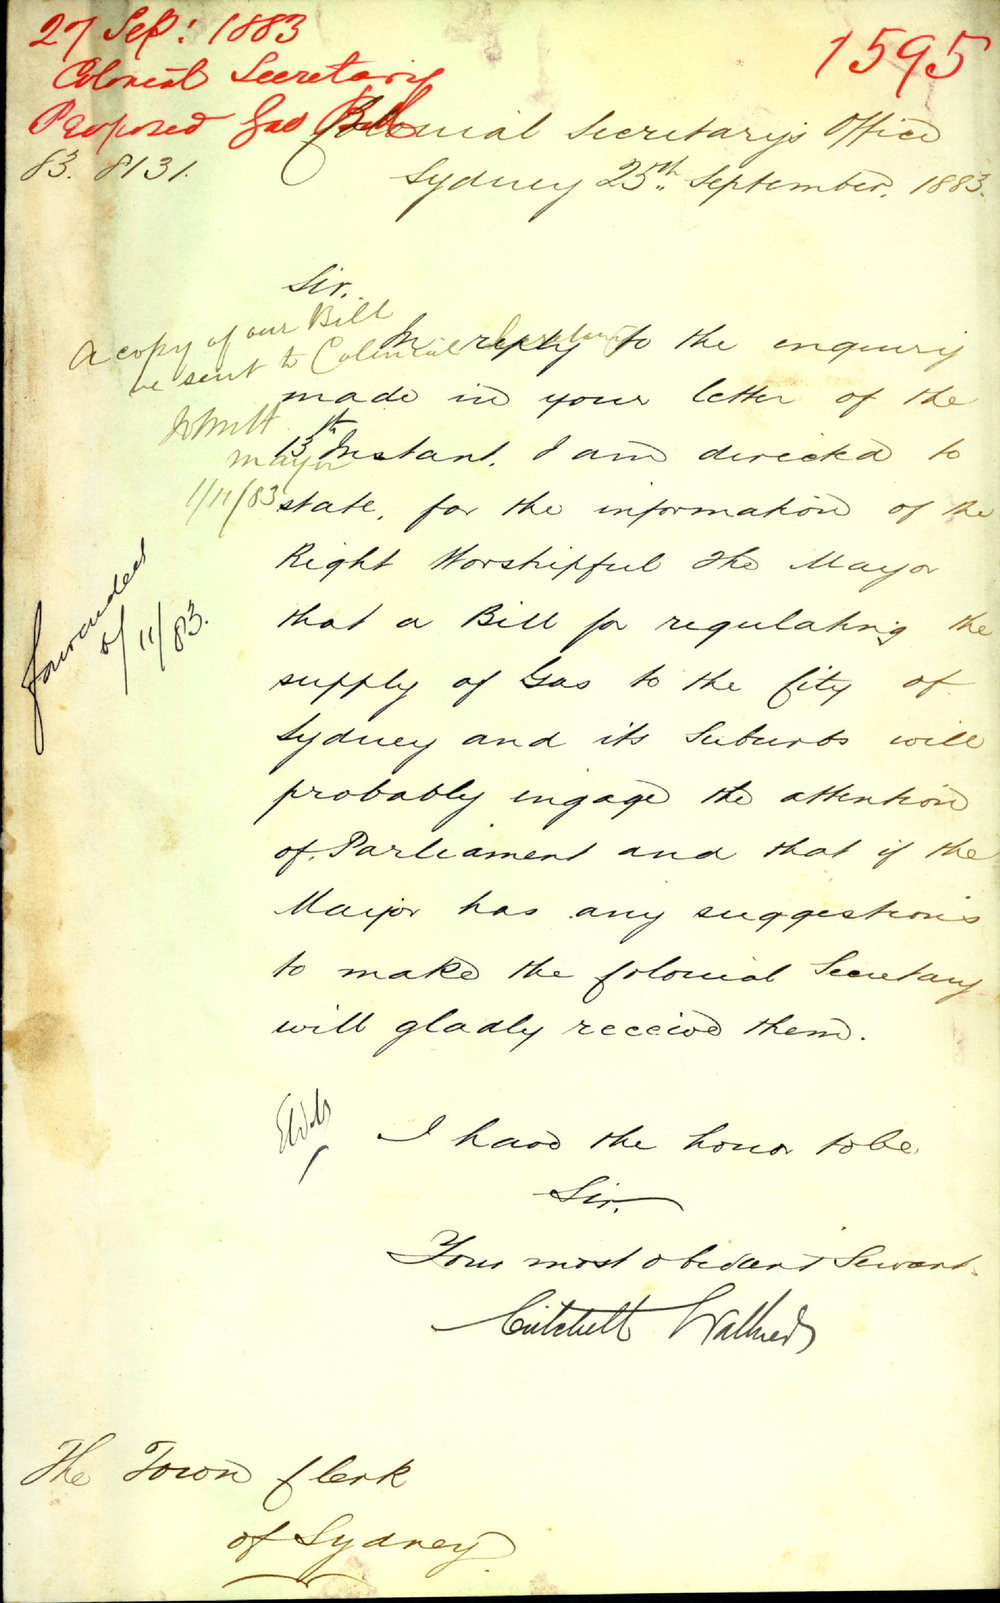 27 Sep: 1883
Colonial Secretary
Proposed Gas Bill
1595
83. 8131.
Colonial Secretary's Office
Sydney 25th September, 1883.
Sir,
A copy of our Bill
be sent to Colonial Secretary
Mayor
1/11/83
forwarded
6/11/83.
In reply to the enquiry
made in your letter of the
13th Instant, I am directed to
state, for the information of the
Right Worshipful The Mayor
that a Bill for regulating the
supply of Gas to the City of
Sydney and its Suburbs will
probably engage the attention
of Parliament and that if the
Mayor has any suggestions
to make the Colonial Secretary
will gladly receive them.
I have the honor to be,
Sir,
Your most obedient Servant.
Critchett Walker
The Town Clerk
of Sydney